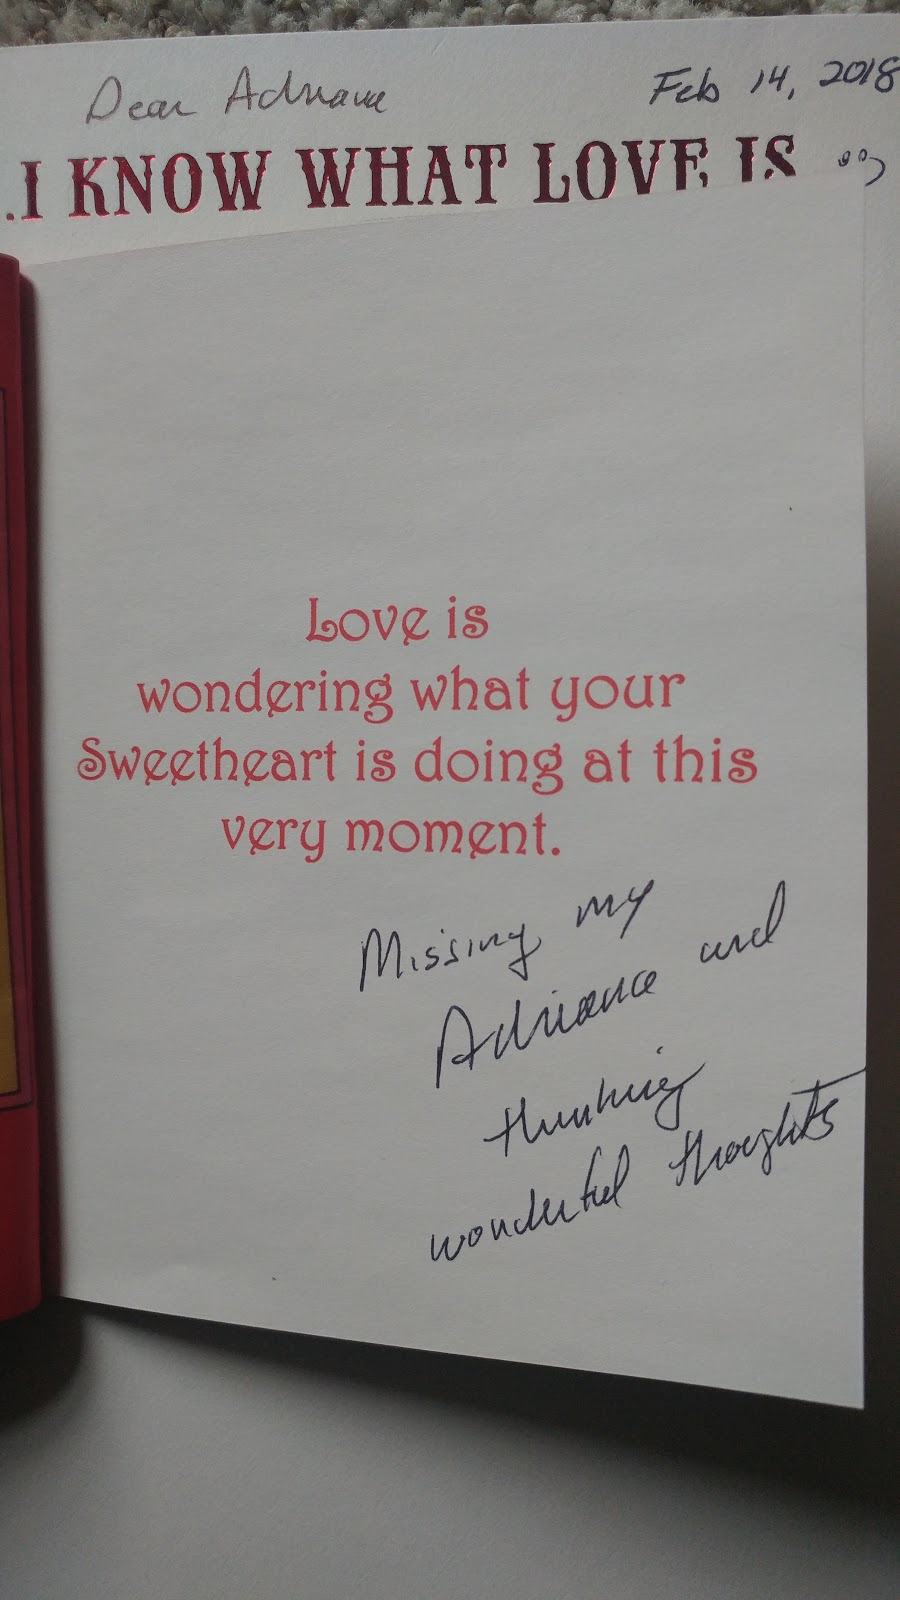 Dear Adriana
Feb 14, 2018
..I KNOW WHAT LOVE IS
Love is
wondering what your
Sweetheart is doing at this
very moment.
Missing my
Adriana and
thinking
wonderful thoughts